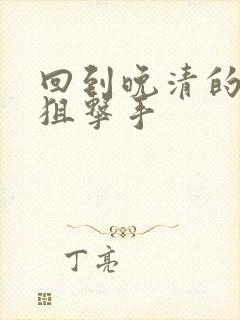 回到晚清的
狙撃手
丁亮